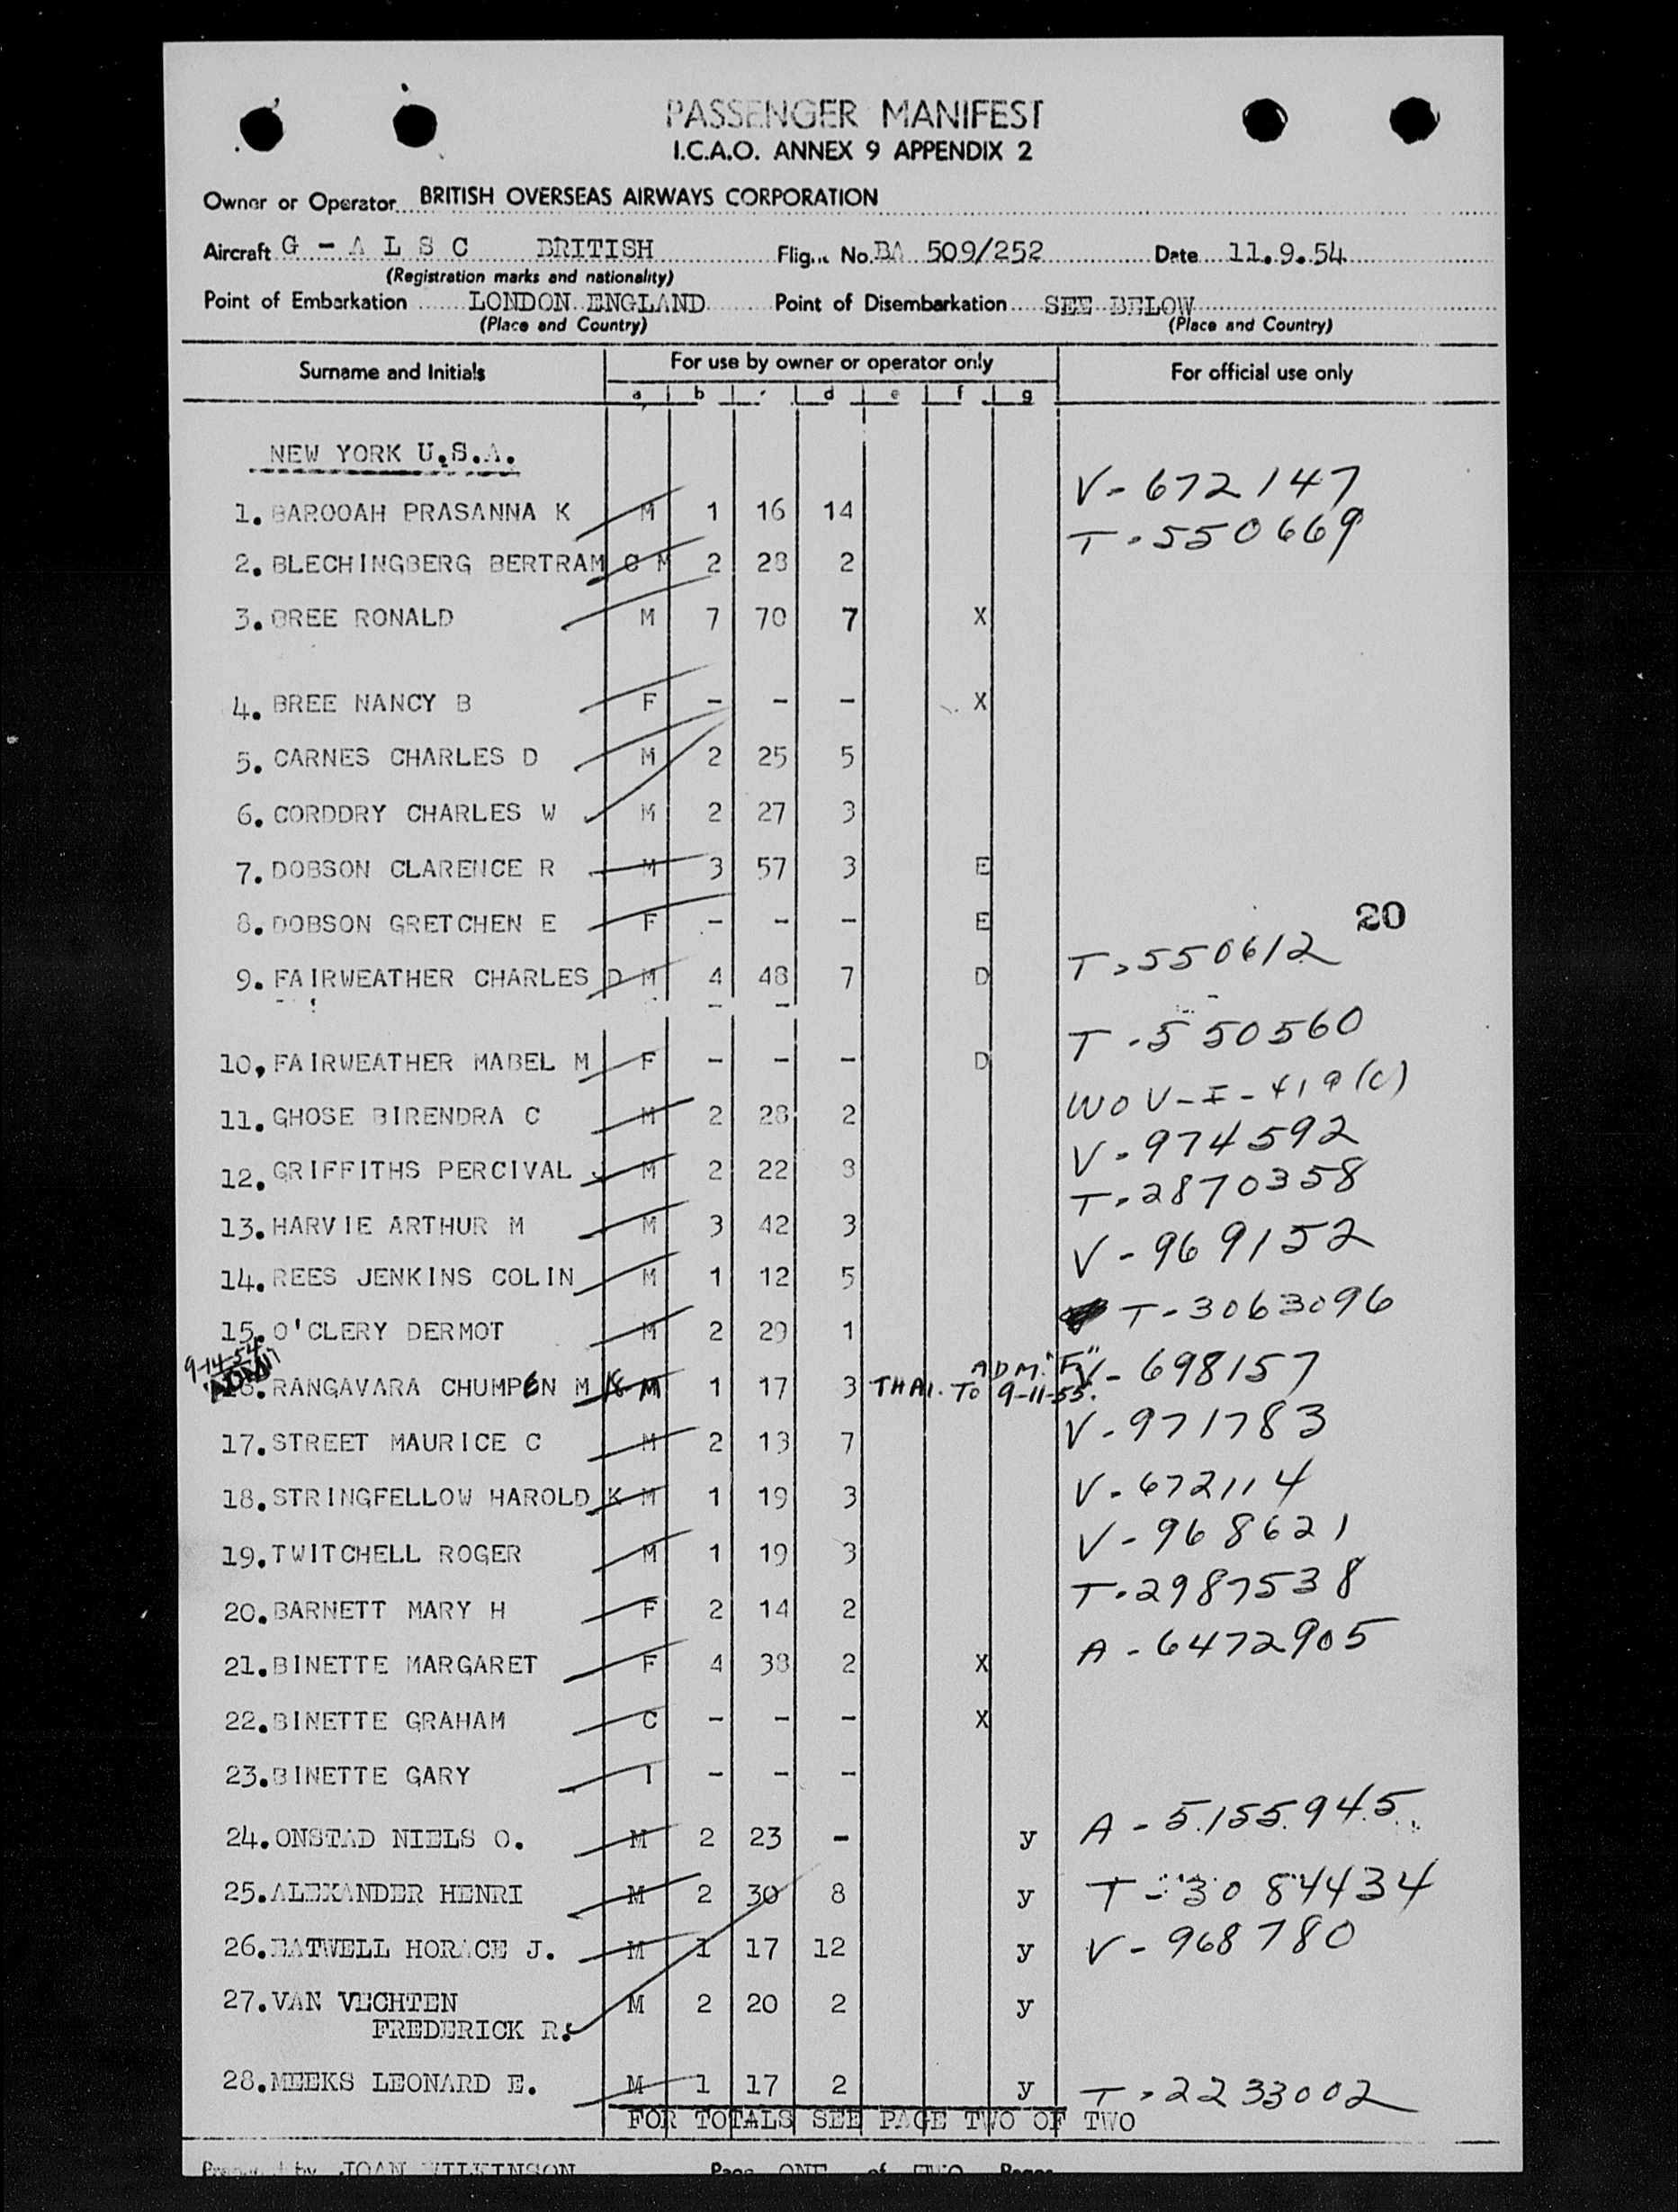 PASSENGER MANIFEST
I.C.A.O. ANNEX 9 APPENDIX 2
Owner or Operator BRITISH OVERSEAS AIRWAYS CORPORATION
Aircraft G - A L S C BRITISH Flig.. No. BA 509/252 Date 11.9.54
(Registration marks and nationality)
Point of Embarkation LONDON ENGLAND Point of Disembarkation SEE BELOW
(Place and Country) (Place and Country)
Surname and Initials For use by owner or operator only For official use only
a b d e f g
NEW YORK U.S.A.
V - 672147
1. BAROOAH PRASANNA K M 1 16 14
T - 550669
2. BLECHINGBERG BERTRAM C M 2 28 2
3. BREE RONALD M 7 70 7 X
4. BREE NANCY B F - - - X
5. CARNES CHARLES D M 2 25 5
6. CORDDRY CHARLES W M 2 27 3
7. DOBSON CLARENCE R M 3 57 3 E
8. DOBSON GRETCHEN E F - - - E 20
9. FAIRWEATHER CHARLES D M 4 48 7 D T - 550612
10. FAIRWEATHER MABEL M F - - - D T - 550560
WO V - I - 419 (c)
11. GHOSE BIRENDRA C M 2 28 2
V - 974592
12. GRIFFITHS PERCIVAL J M 2 22 3 T - 2870358
13. HARVIE ARTHUR M M 3 42 3 V - 969152
14. REES JENKINS COLIN M 1 12 5
15. O'CLERY DERMOT M 2 29 1 T - 3063096
9-14-54 ADM. "F"
ADM
16. RANGAVARA CHUMPEN M K M 1 17 3 THAI. TO 9-11-55. V - 698157
17. STREET MAURICE C M 2 13 7 V - 971783
18. STRINGFELLOW HAROLD K M 1 19 3 V - 672114
19. TWITCHELL ROGER M 1 19 3 V - 968621
20. BARNETT MARY H F 2 14 2 T - 2987538
21. BINETTE MARGARET F 4 38 2 X A - 6472905
22. BINETTE GRAHAM C - - - X
23. BINETTE GARY I - - -
24. ONSTAD NIELS O. M 2 23 - y A - 5155945
25. ALEXANDER HENRI M 2 30 8 y T - 3084434
26. BATWELL HORACE J. M 1 17 12 y V - 968780
27. VAN VECHTEN M 2 20 2 y
FREDERICK R.
28. MEEKS LEONARD E. M 1 17 2 y T - 2233002
FOR TOTALS SEE PAGE TWO OF TWO
Prepared by JOAN WILKINSON Page ONE of TWO Pages